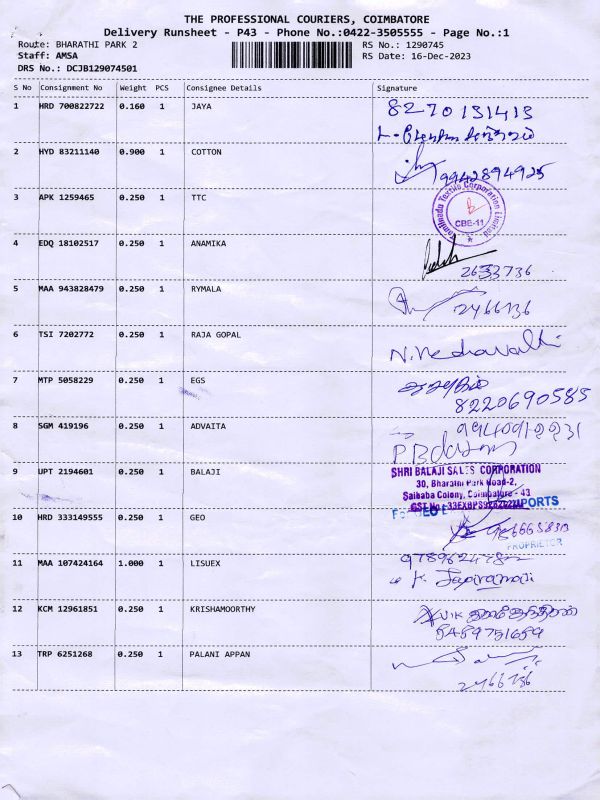 THE PROFESSIONAL COURIERS, COIMBATORE
Delivery Runsheet - P43 - Phone No.:0422-3505555 - Page No.:1
Route: BHARATHI PARK 2 RS No.: 1290745
Staff: AMSA RS Date: 16-Dec-2023
DRS No.: DCJB129074501
S No Consignment No Weight PCS Consignee Details Signature
1 HRD 700822722 0.160 1 JAYA 8270131413
2 HYD 83211140 0.900 1 COTTON 9942894925
3 APK 1259465 0.250 1 TTC
Tamilnadu Textile Corporation Limited
CBE-11
4 EDQ 18102517 0.250 1 ANAMIKA
2633736
5 MAA 943828479 0.250 1 RYMALA 2466736
6 TSI 7202772 0.250 1 RAJA GOPAL
7 MTP 5058229 0.250 1 EGS
8220690585
8 SGM 419196 0.250 1 ADVAITA
9 UPT 2194601 0.250 1 BALAJI SHRI BALAJI SALES CORPORATION
30, Bharathi Park Road-2,
Saibaba Colony, Coimbatore - 43
10 HRD 333149555 0.250 1 GEO
PROPRIETOR
11 MAA 107424164 1.000 1 LISUEX
12 KCM 12961851 0.250 1 KRISHAMOORTHY
13 TRP 6251268 0.250 1 PALANI APPAN
2466736